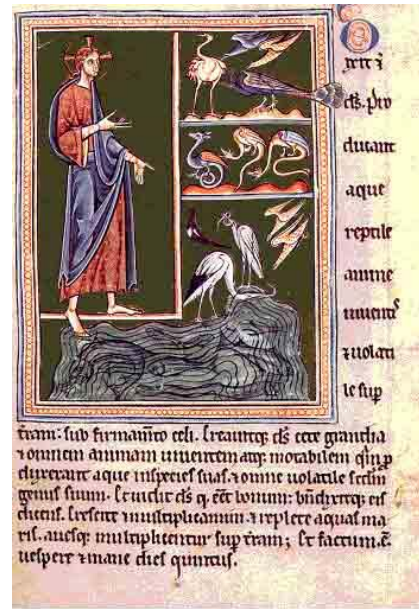 D
ds. pro
ducant
aque
reptile
anime
uiuentis
⁊ uolati
le sup
terram: sub firmamto celi. Creauitq; ds cete grandia
⁊ omnem animam uiuentem atq; motabilem quā p
duxerant aque in species suas. ⁊ omne uolatile sedm
genus suum. Et uidit ds q̄ eēt bonum: bn̄dixitq; eis
dicens. Crescite ⁊ multiplicamini. ⁊ replete aquas ma
ris. auesq; multiplicentur sup terram; Et factum.ē.
uespere ⁊ mane dies quintus.